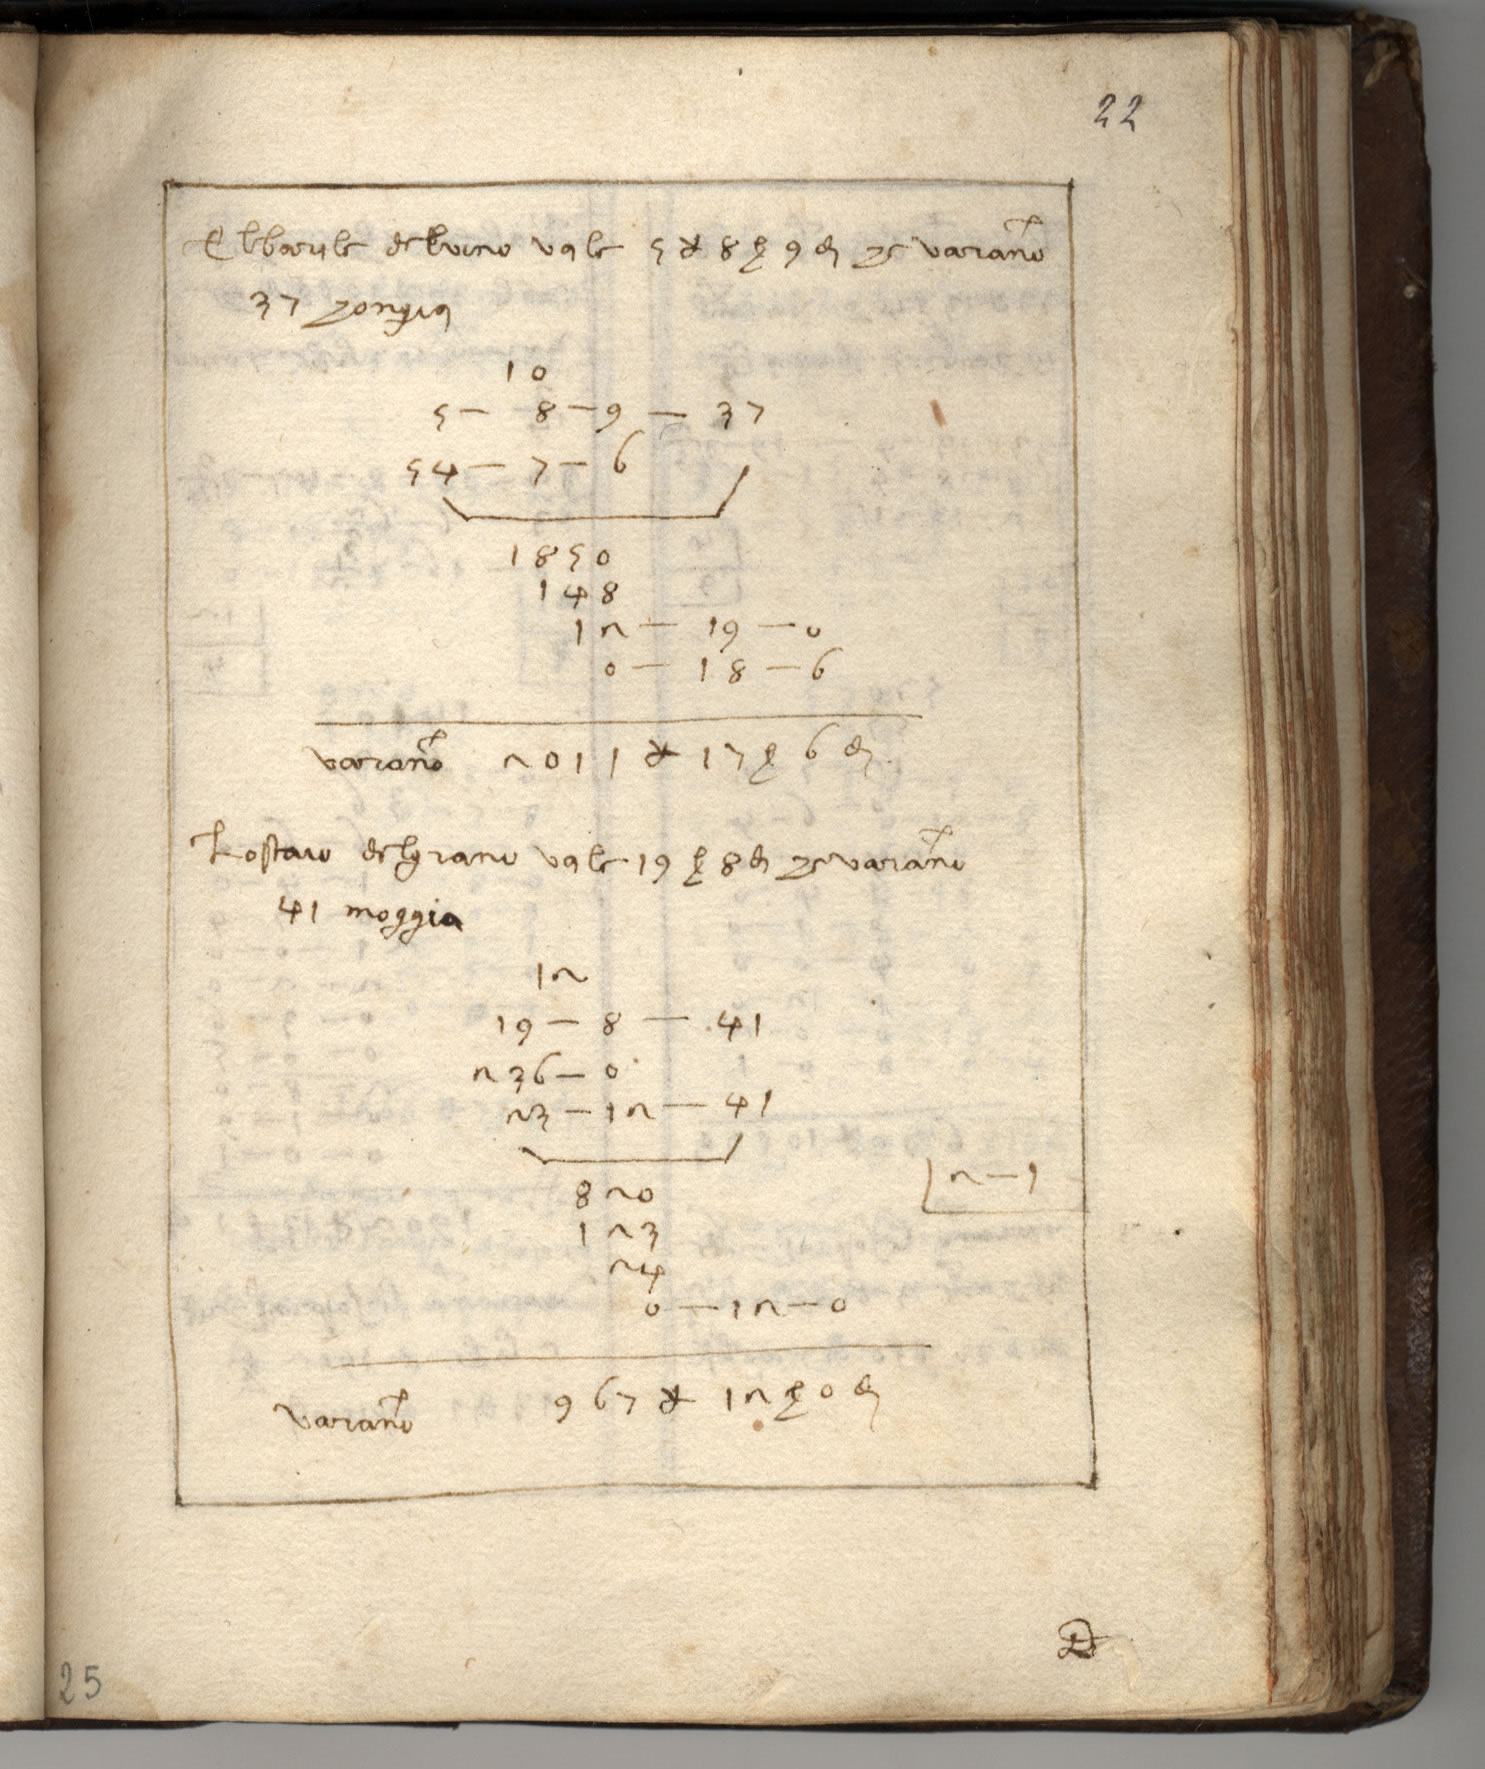 22
El barile del vino vale 5 ₰ 8 ß 9 đ che varanno
37 congia
10
5 — 8 — 9 — 37
54 — 7 — 6
1850
148
12 — 19 — 0
0 — 18 — 6
varanno 2011 ₰ 17 ß 6 đ
Lo staio del grano vale 19 ß 8 đ che varanno
41 moggia
12
19 — 8 — 41
236 — 0
23 — 12 — 41
820
2 — 1
123
24
0 — 12 — 0
varanno 967 ₰ 12 ß 0 đ
25